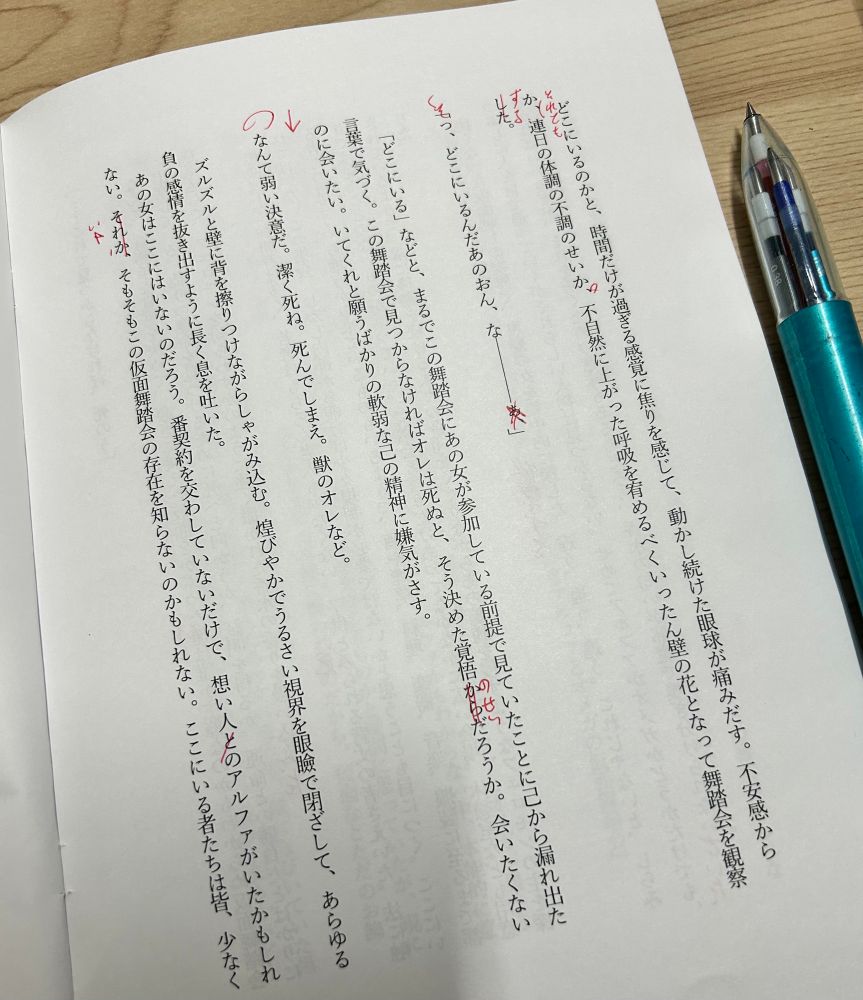 どこにいるのかと、時間だけが過ぎる感覚に焦りを感じて、動かし続けた眼球が痛みだす。不安感から
それとも
か、連日の体調の不調のせいか、不自然に上がった呼吸を宥めるべくいったん壁の花となって舞踏会を観察
する
した。
「もっ、どこにいるんだあのおん、な――――」
「どこにいる」などと、まるでこの舞踏会にあの女が参加している前提で見ていたことに己から漏れ出た
言葉で気づく。この舞踏会で見つからなければオレは死ぬと、そう決めた覚悟からだろうか。会いたくない
のせい
のに会いたい。いてくれと願うばかりの軟弱な己の精神に嫌気がさす。
なんて弱い決意だ。潔く死ね。死んでしまえ。獣のオレなど。
ズルズルと壁に背を擦りつけながらしゃがみ込む。煌びやかでうるさい視界を眼瞼で閉ざして、あらゆる
負の感情を抜き出すように長く息を吐いた。
あの女はここにはいないのだろう。番契約を交わしていないだけで、想い人とのアルファがいたかもしれ
ない。それか、そもそもこの仮面舞踏会の存在を知らないのかもしれない。ここにいる者たちは皆、少なく
いや、
0.38